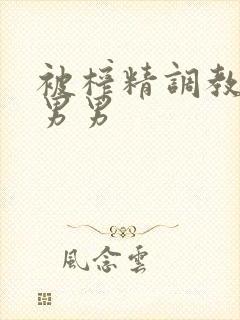 被榨精調教
男男
風念雲